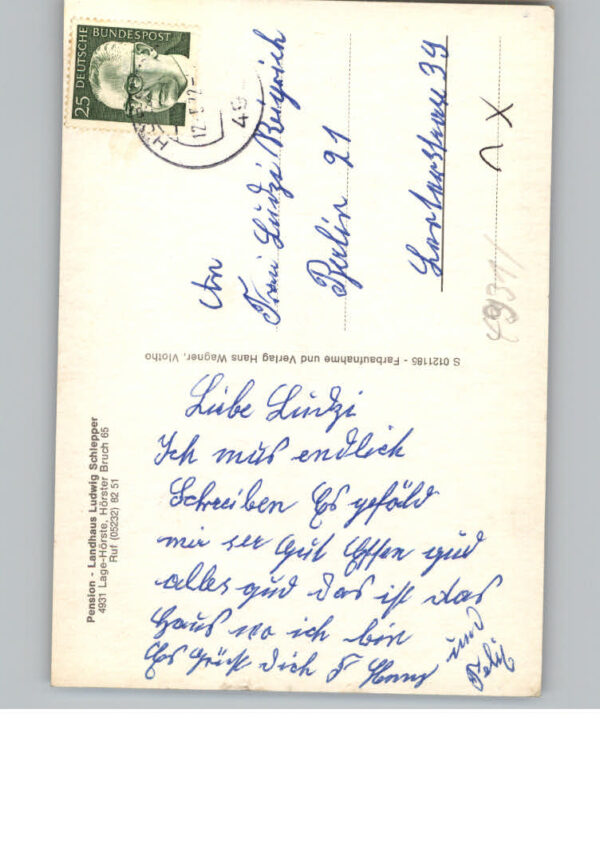 DEUTSCHE BUNDESPOST
25
12
49
An
Frau Ludzi
Berlin 21
39
4931/
S 0121185 - Farbaufnahme und Verlag Hans Wagner, Vlotho
Pension - Landhaus Ludwig Schlepper
4931 Lage-Hörste, Hörster Bruch 65
Ruf (05232) 82 51
Liebe Ludzi
Ich mus endlich
Schreiben Es gefäld
mir ser gut Essen gud
alles gud das ist das
Haus wo ich bin
Es grüst dich
und